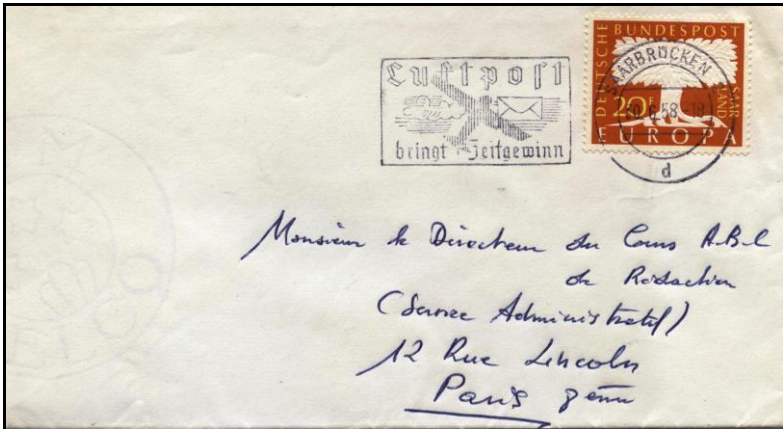 Luftpost
bringt Zeitgewinn
DEUTSCHE BUNDESPOST
SAARLAND
20F
EUROPA
SAARBRÜCKEN
6.58-18
d
Monsieur le Directeur du Cours A.B.C
de Rédaction
(Service Administratif)
12 Rue Lincoln
Paris 8ème